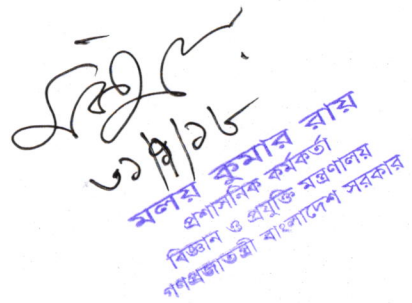 মলয় কুমার রায়
প্রশাসনিক কর্মকর্তা
বিজ্ঞান ও প্রযুক্তি মন্ত্রণালয়
গণপ্রজাতন্ত্রী বাংলাদেশ সরকার